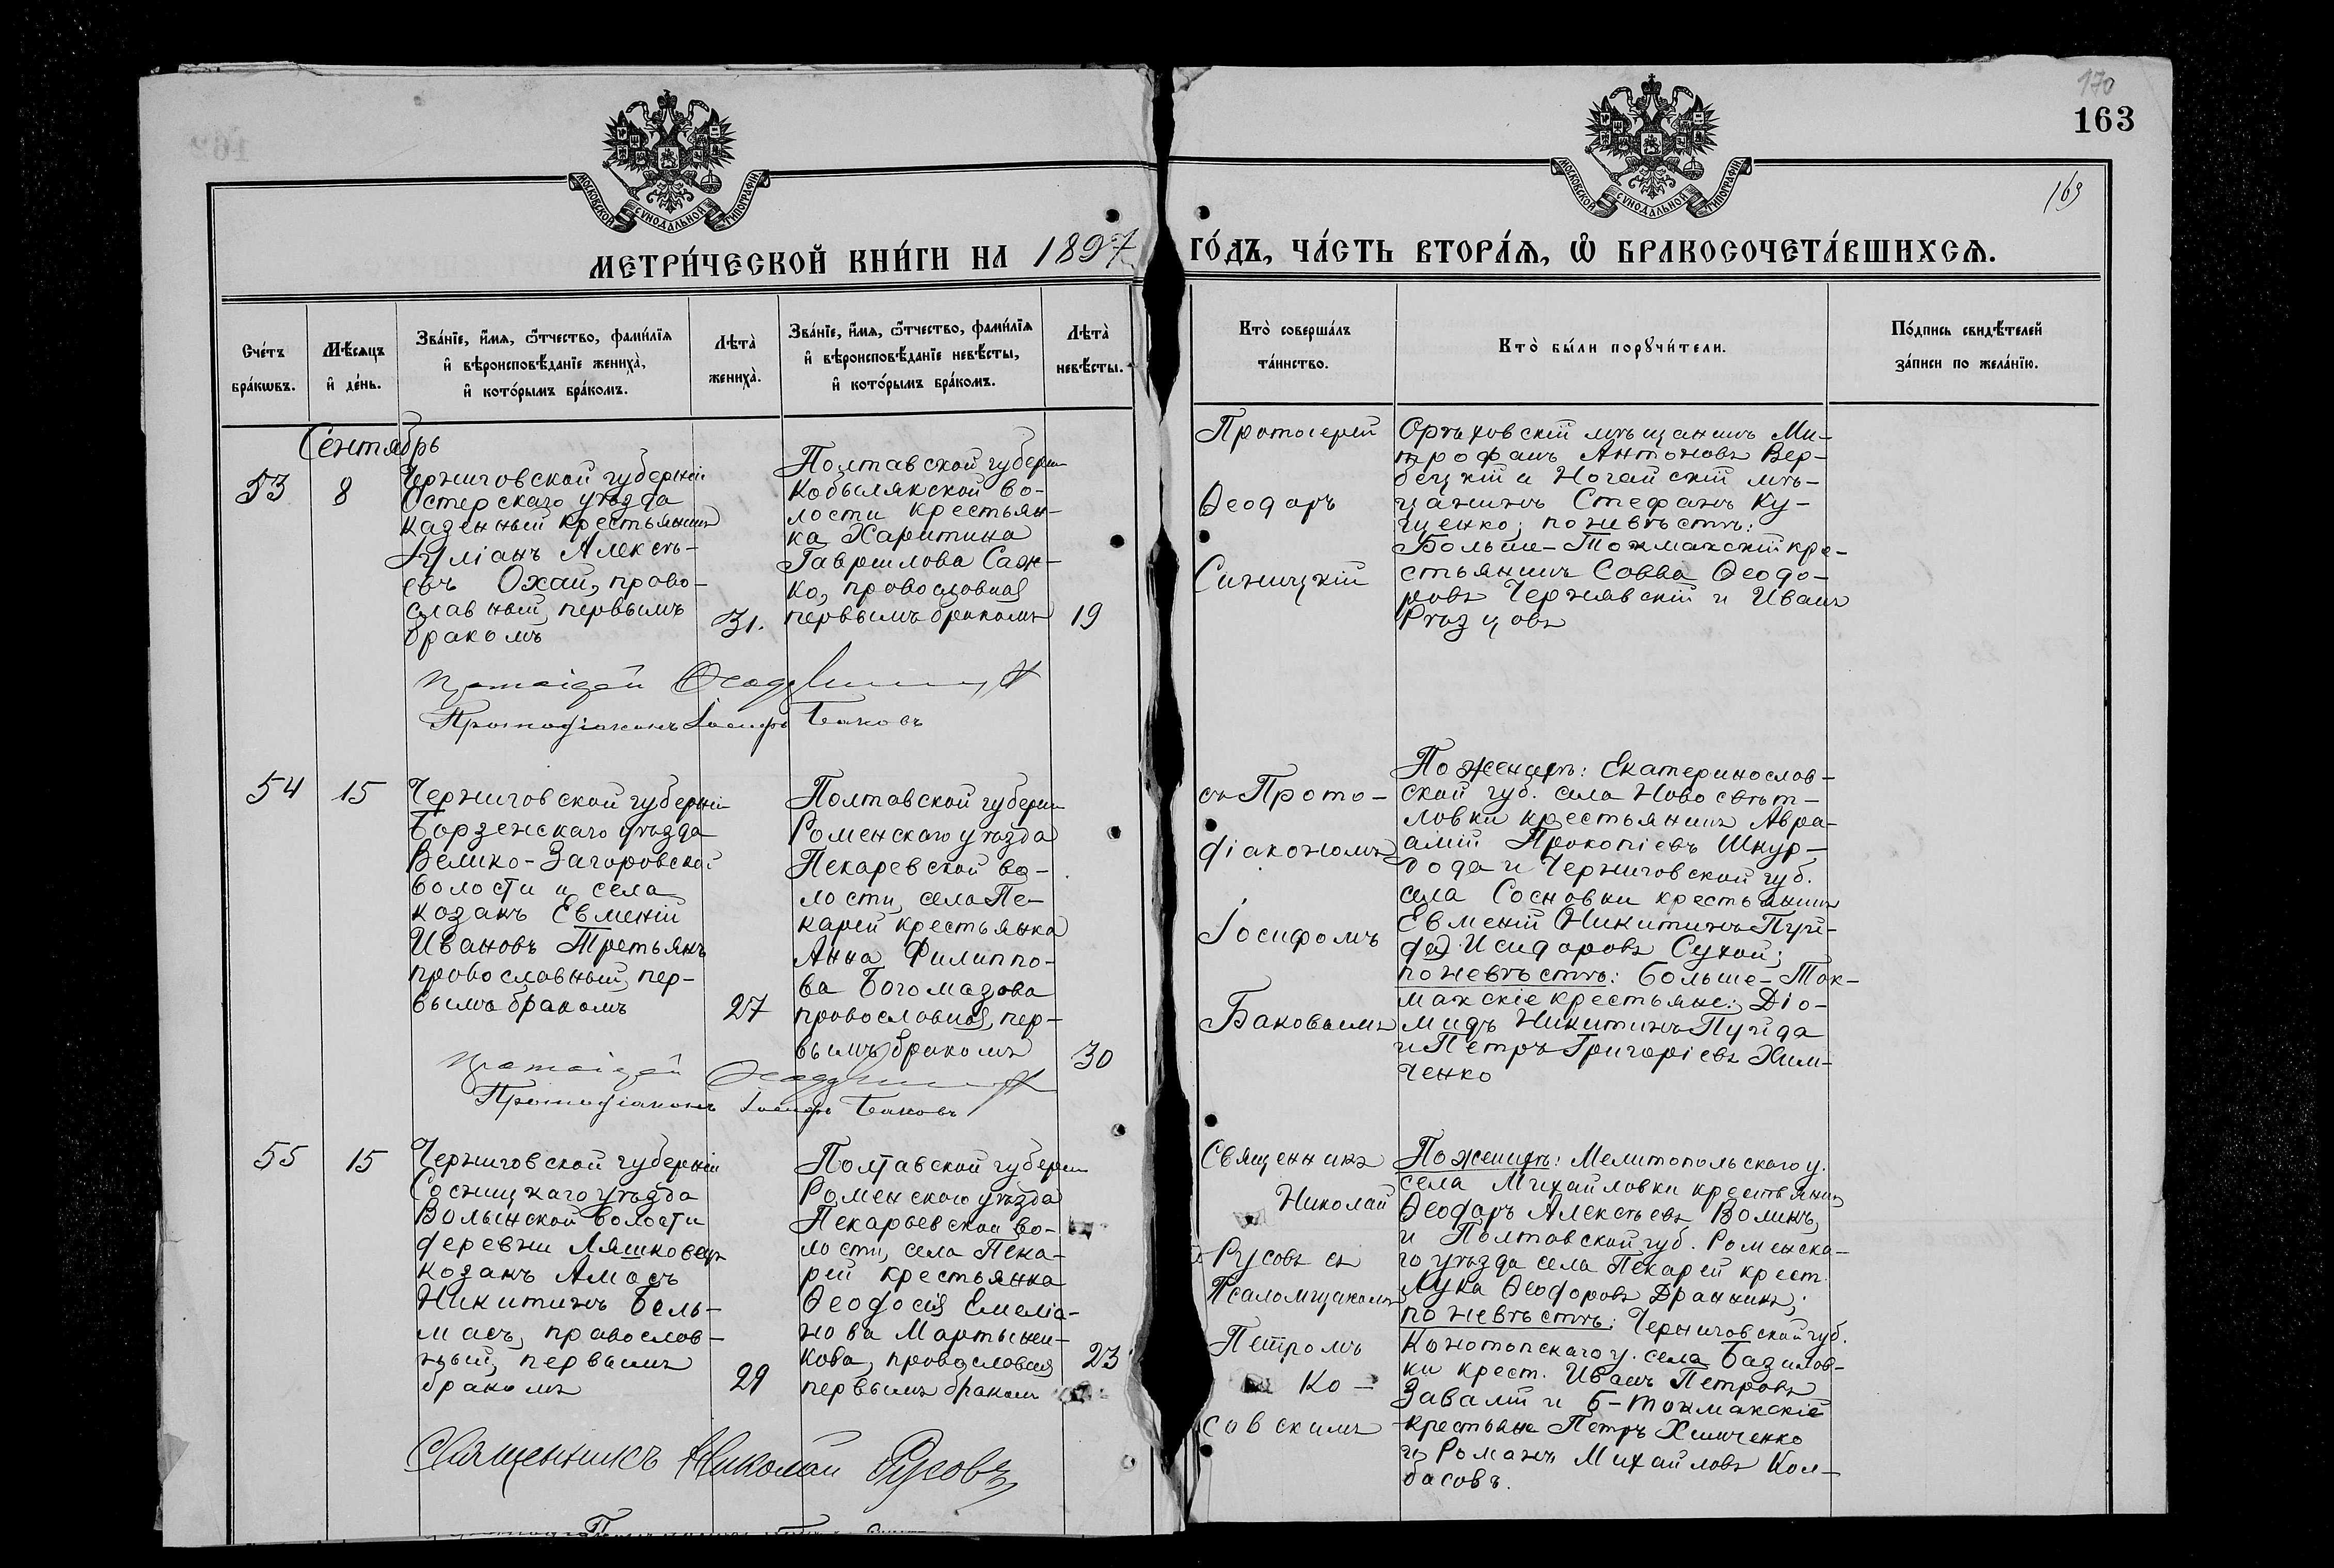 170
163
163
МОСКОВСКОЙ СѴНОДАЛЬНОЙ ТИПОГРАФІИ
МОСКОВСКОЙ СѴНОДАЛЬНОЙ ТИПОГРАФІИ
МЕТРИ́ЧЕСКОЙ КНИ́ГИ НА 1897 ГО́ДЪ, ЧА́СТЬ ВТОРА́Я, Ѡ҆ БРАКОСОЧЕТА́ВШИХСЯ.
Сче́тъ
бра́кѡвъ.
Мѣ́сяцъ
и҆ де́нь.
Зва́нїе, и҆́мя, ѻ҆́тчество, фами́лїя
и҆ вѣроисповѣ́данїе жениха̀,
и҆ кото́рымъ бра́комъ.
Лѣта̀
жениха̀.
Зва́нїе, и҆́мя, ѻ҆́тчество, фами́лїя
и҆ вѣроисповѣ́данїе невѣ́сты,
и҆ кото́рымъ бра́комъ.
Лѣта̀
невѣ́сты.
Кто̀ соверша́лъ
та́инство.
Кто̀ бы́ли порꙋчи́тели.
По́дпись свидѣ́телей
за́писи по жела́нїю.
Сентябрь
53
8
Черниговской губерніи
Остерскаго уѣзда
казенный крестьянинъ
Іуліанъ Алексѣ-
евъ Охай, право-
славный, первымъ
бракомъ
31.
Полтавской губерніи
Кобылякской во-
лости крестьян-
ка Харитина
Гаврилова Сан-
ко, православная
первымъ бракомъ
19
Протоіерей
Ѳеодоръ
Синицкій
Орѣховскій мѣщанинъ Ми-
трофанъ Антоновъ Вер-
бецкій и Ногайскій мѣ-
щанинъ Стефанъ Ку-
ценко; по невѣстѣ:
Больше-Токмакскій кре-
стьянинъ Савва Ѳеодо-
ровъ Чернявскій и Иванъ
Рѣзцовъ
Протоіерей Ѳеодоръ
Протодіаконъ Іосифъ Баковъ
54
15
Черниговской губерніи
Борзенскаго уѣзда
Велико-Загоровской
волости и села
козакъ Евменій
Ивановъ Третьякъ
православный, пер-
вымъ бракомъ
27
Полтавской губерніи
Роменскаго уѣзда
Пекаревской во-
лости, села Пе-
карей крестьянка
Анна Филиппо-
ва Богомазова
православная, пер-
вымъ бракомъ
30
съ Прото-
діакономъ
Іосифомъ
Баковымъ
По женихѣ: Екатеринослав-
ской губ. села Новосвѣт-
ловки крестьянинъ Авра-
амій Прокопіевъ Шкур-
ода и Черниговской губ.
села Сосновки крестьянинъ
Евменій Никитинъ Пуй-
да Исидоровъ Сухой;
по невѣстѣ: Больше-Ток-
макскіе крестьяне: Діо-
мидъ Никитинъ Пуйда
и Петръ Григоріевъ Хим-
ченко
Протоіерей Ѳеодоръ
Протодіаконъ Іосифъ Баковъ
55
15
Черниговской губерніи
Сосницкаго уѣзда
Волынской волости
деревни Ляшковецъ
козакъ Амосъ
Никитинъ Бель-
масъ, православ-
ный, первымъ
бракомъ
29
Полтавской губерніи
Роменскаго уѣзда
Пекарьевской во-
лости, села Пека-
рей крестьянка
Ѳеодосія Емеліа-
нова Мартынен-
кова, православная
первымъ бракомъ
23
Священникъ
Николай
Русовъ съ
Псаломщикомъ
Петромъ
Ко-
совскимъ
По женихѣ: Мелитопольскаго у.
села Михайловки крестьянинъ
Ѳеодоръ Алексѣевъ Волинъ,
и Полтавской губ. Роменска-
го уѣзда села Пекарей крест.
Лука Ѳеодоровъ Дранникъ;
по невѣстѣ: Черниговской губ.
Конотопскаго у. села Базилов-
ки крест. Иванъ Петровъ
Завалій и Б-Токмакскіе
крестьяне Петръ Химченко
и Романъ Михайловъ Кол-
басовъ.
Священникъ Николай Русовъ